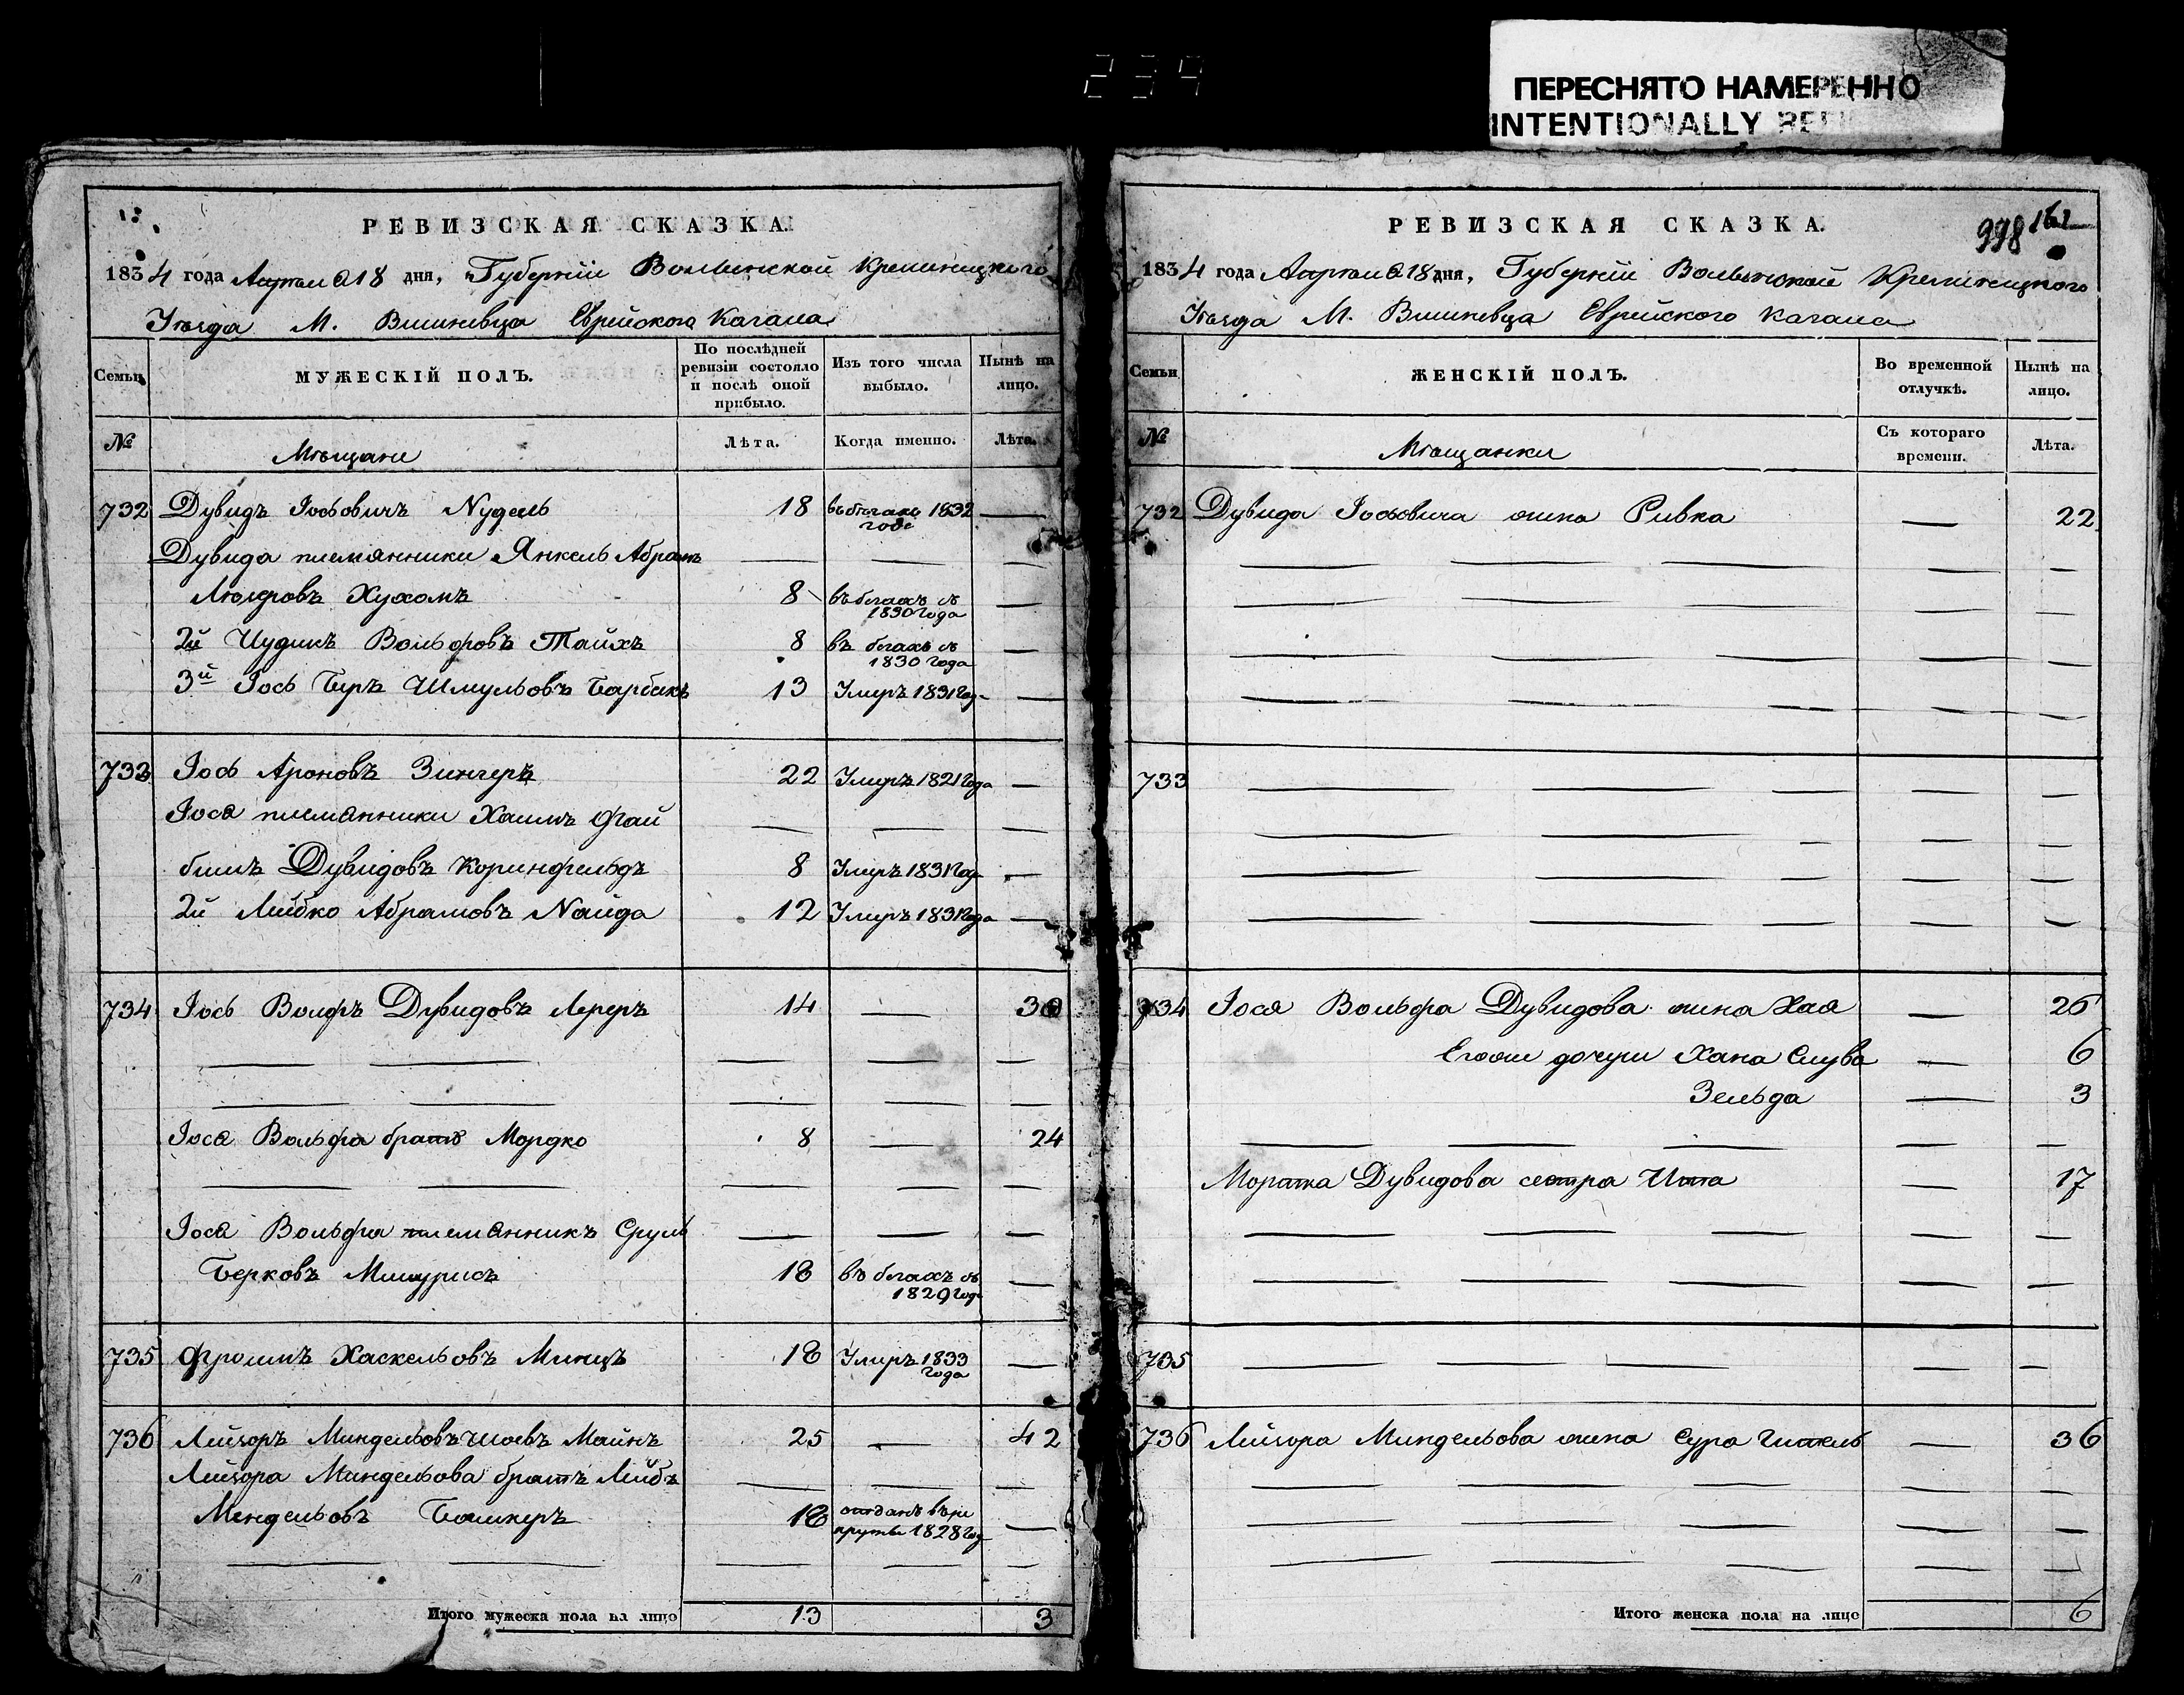 234
ПЕРЕСНЯТО НАМЕРЕННО
INTENTIONALLY
РЕВИЗСКАЯ СКАЗКА.
1834 года Апреля 18 дня, Губерніи Волынской Кременецкого
Уѣзда М. Вишневца Еврейского Кагала
Семьи
МУЖЕСКІЙ ПОЛЪ.
По послѣдней ревизіи состояло и послѣ оной прибыло.
Изъ того числа выбыло.
Нынѣ на лицо.
№
Мѣщане
Лѣта.
Когда именно.
Лѣта.
732 Дувидъ Іосьовичъ Nудель 18 въ бѣгахъ 1832 годе —
Дувида племянники Янкель Абрамъ — — —
Хухомъ 8 въ бегахъ съ 1830 года —
2й Иудикъ Вольфовъ Тайхъ 8 въ бегахъ съ 1830 года —
3й Іось Беръ Шмульовъ Барбакъ 13 Умеръ 1831 год —
733 Іось Ароновъ Зингеръ 22 Умеръ 1821 года —
Іося племянники Хаимъ Фай — — —
бишъ Дувидовъ Коринфельдъ 8 Умеръ 1831 год —
2й Лейбко Абрамовъ Nайда 12 Умеръ 1831 года —
734 Іось Волфъ Дувидовъ Лереръ 14 — 30
— — — — —
— — — — —
Іося Вольфа братъ Мордко 8 — 24
— — — — —
Іося Вольфа племянникъ Сруль — — —
Берковъ 18 въ бегахъ съ 1829 год —
735 Фроимъ Хаскельовъ Минцъ 18 Умеръ 1833 года —
736 Лейзоръ Миндельовъ 25 — 42
Лейзора Миндельова братъ Лейбъ — — —
Мендельовъ Башкеръ 18 отданъ въ ре круты 1828 год —
— — — — —
Итого мужеска пола на лицо 13 3
РЕВИЗСКАЯ СКАЗКА.
998 161
1834 года Апреля 18 дня, Губерніи Волынской Кременецкого
Уѣзда М. Вишневца Еврейского Кагала
Семьи
ЖЕНСКІЙ ПОЛЪ.
Во временной отлучкѣ.
Нынѣ на лицо.
№
Мѣщанки
Съ котораго времени.
Лѣта.
732 Дувида Іосьовича жена Ривка — 22
— — — — —
— — — — —
— — — — —
— — — — —
733 — — — — —
— — — —
— — — — —
— — — — —
734 Іося Вольфа Дувидова жена Хая — 26
Егоже дочери Хана Слува — 6
Зельда — 3
— — — — —
Моратка Дувидова сестра Ита — 17
— — — — —
— — — — —
735 — — — — —
736 Лейзора Миндельова жена Сура Гитель — 36
— — — — —
— — — — —
— — — — —
Итого женска пола на лицо 6